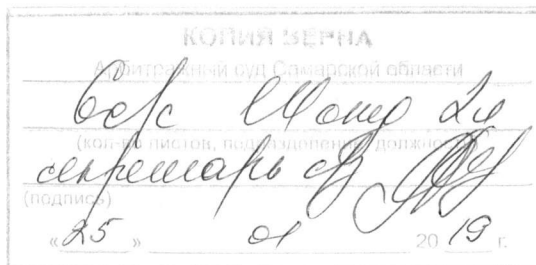 КОПИЯ ВЕРНА
Арбитражный суд Самарской области
(кол-во листов, подразделение, должность)
секретарь с/з
(подпись)
«25» 01 2019 г.